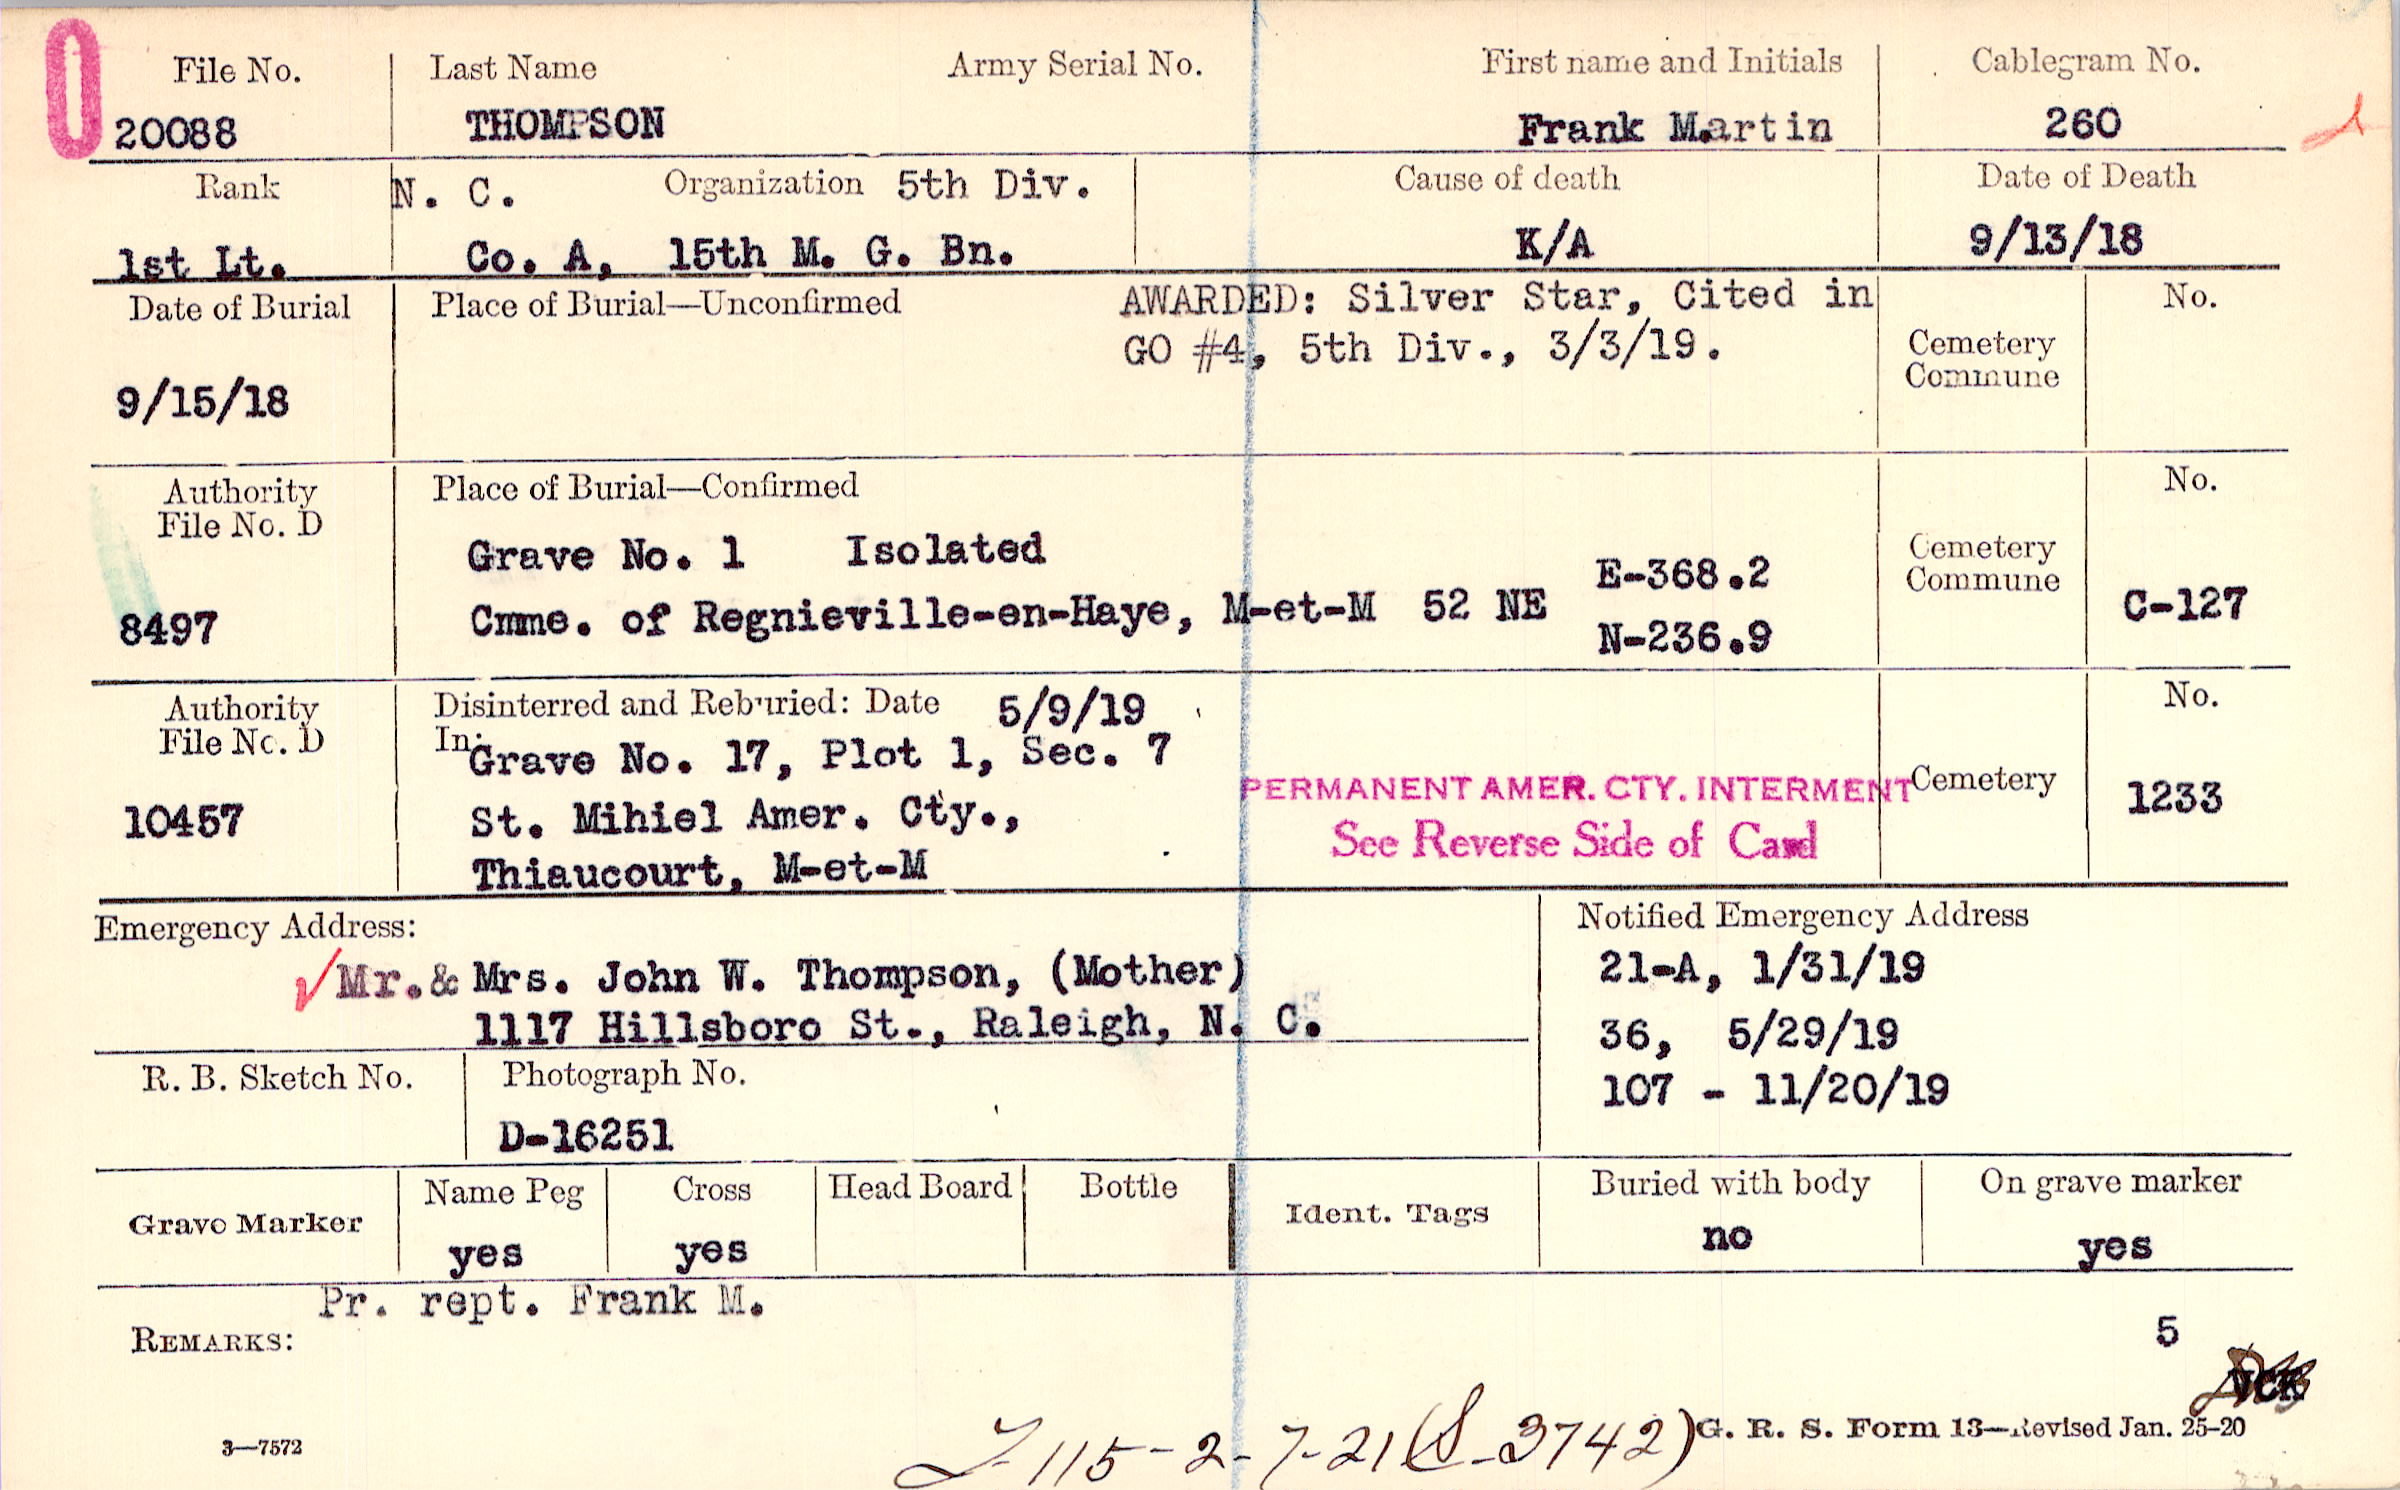 0
File No. Last Name Army Serial No. First name and Initials Cablegram No.
20088 THOMPSON Frank Martin 260
Rank N. C. Organization 5th Div. Cause of death Date of Death
1st Lt. Co. A, 15th M. G. Bn. K/A 9/13/18
Date of Burial Place of Burial—Unconfirmed AWARDED: Silver Star, Cited in No.
GO #4, 5th Div., 3/3/19. Cemetery
Commune
9/15/18
Authority Place of Burial—Confirmed No.
File No. D
Grave No. 1 Isolated E-368.2 Cemetery
Commune
8497 Cmme. of Regnieville-en-Haye, M-et-M 52 NE N-236.9 C-127
Authority Disinterred and Reburied: Date 5/9/19 No.
File No. D In: Grave No. 17, Plot 1, Sec. 7
PERMANENT AMER. CTY. INTERMENT Cemetery 1233
10457 St. Mihiel Amer. Cty., See Reverse Side of Card
Thiaucourt, M-et-M
Emergency Address: Notified Emergency Address
Mr. & Mrs. John W. Thompson, (Mother) 21-A, 1/31/19
1117 Hillsboro St., Raleigh, N. C. 36, 5/29/19
R. B. Sketch No. Photograph No. 107 - 11/20/19
D-16251
Grave Marker Name Peg Cross Head Board Bottle Ident. Tags Buried with body On grave marker
yes yes no yes
Pr. rept. Frank M.
REMARKS: 5
3—7572 115-2-7-21 (S-3742) G. R. S. Form 13—Revised Jan. 25-20